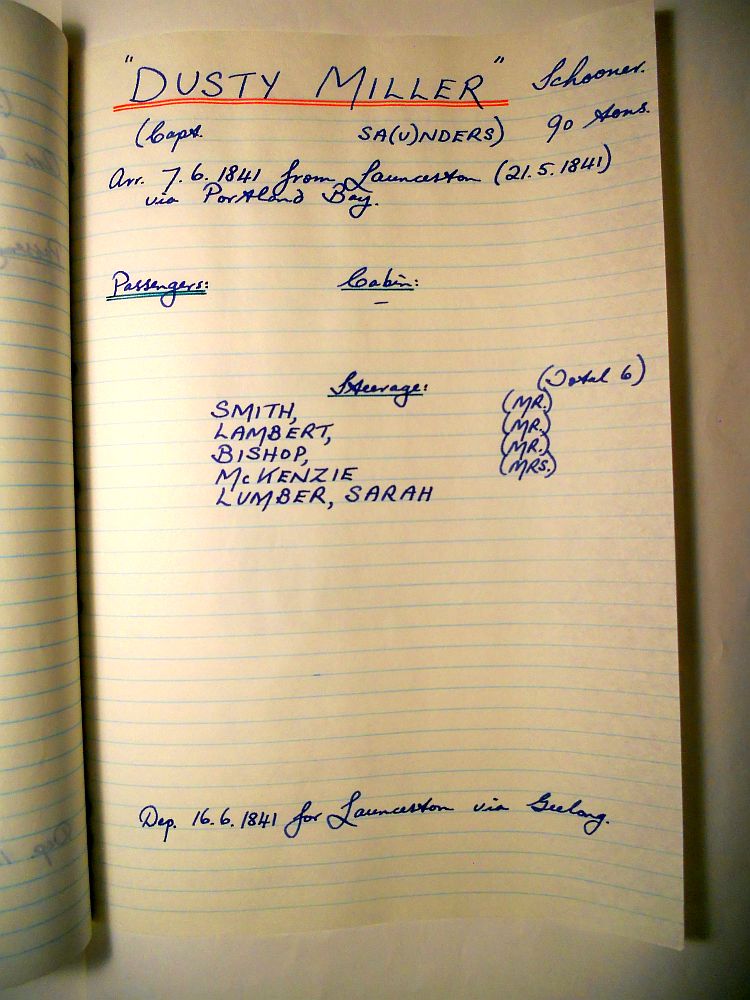 "DUSTY MILLER" Schooner.
(Capt. SA(U)NDERS) 90 tons.
Arr. 7.6.1841 from Launceston (21.5.1841)
via Portland Bay.
Passengers: Cabin:
–
Steerage: (Total 6)
SMITH, (MR.)
LAMBERT, (MR.)
BISHOP, (MR.)
McKENZIE (MRS.)
LUMBER, SARAH
Dep. 16.6.1841 for Launceston via Geelong.